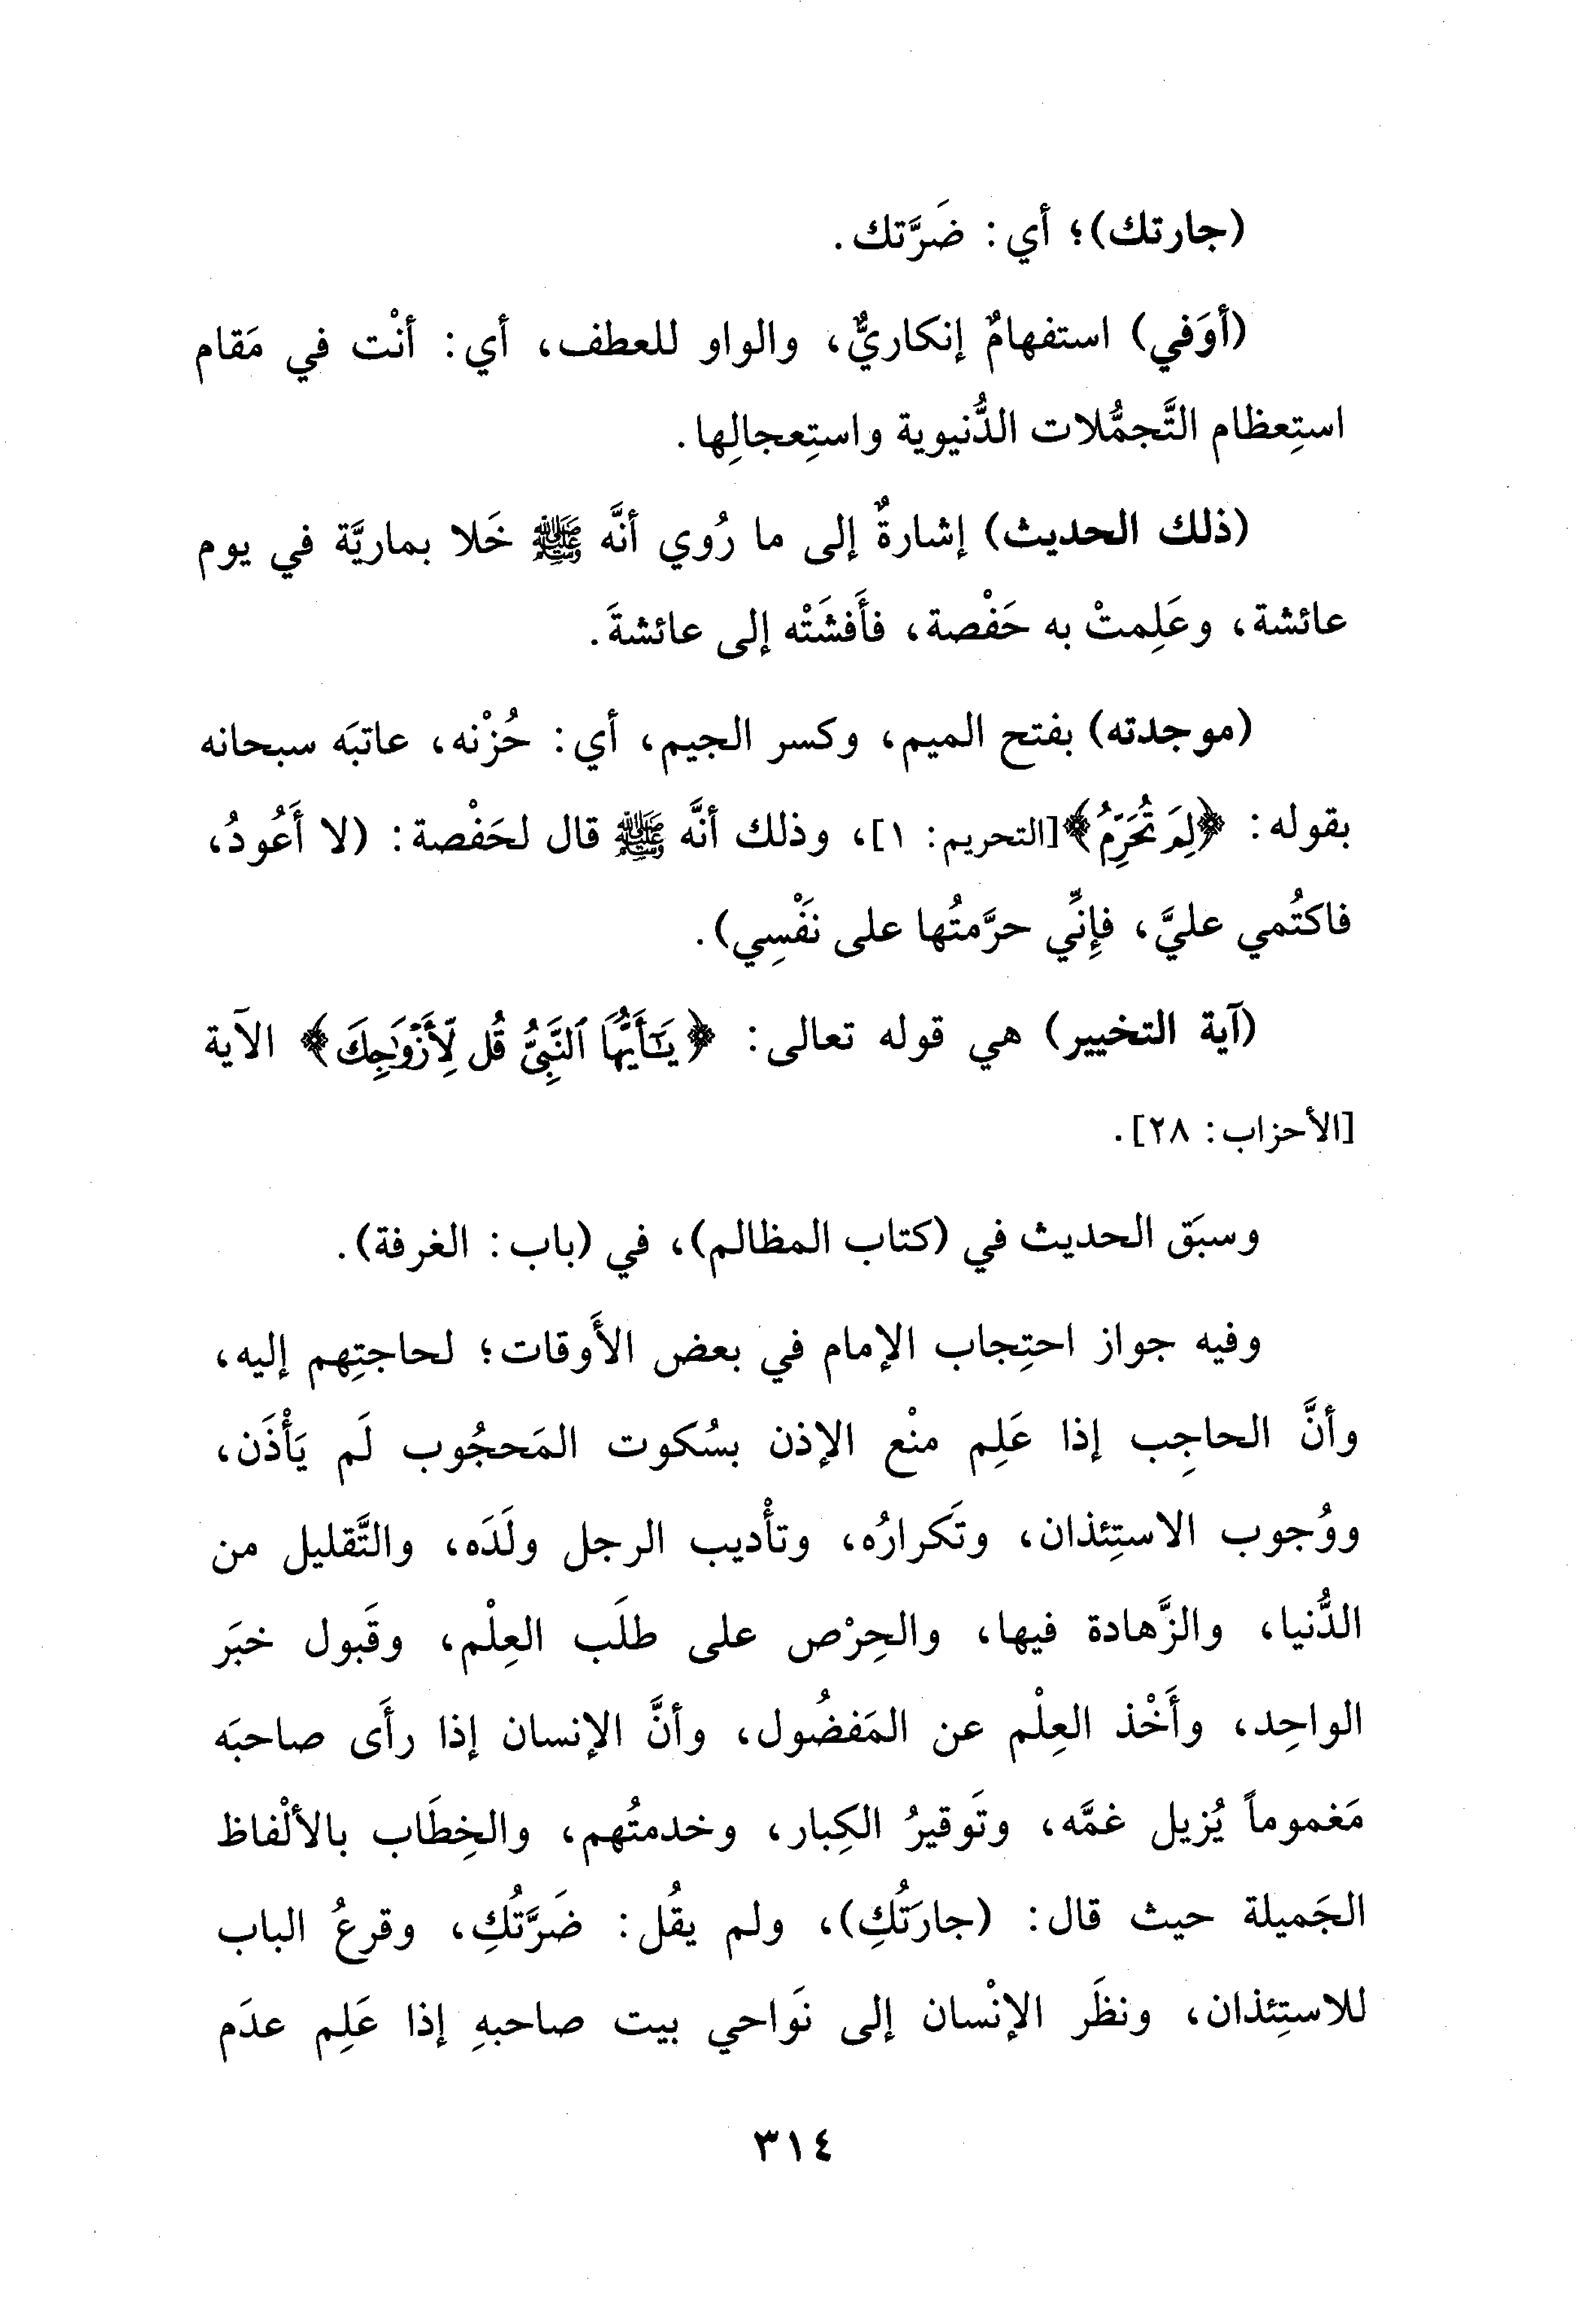 (جارتك)؛ أي: ضَرَّتك.
(أوَفي) استفهامٌ إنكاريٌّ، والواو للعطف، أي: أنْت في مَقام
استِعظام التَّجمُّلات الدُّنيوية واستِعجالِها.
(ذلك الحديث) إشارةٌ إلى ما رُوي أنَّه ﷺ خَلا بماريَّة في يوم
عائشة، وعَلِمتْ به حَفْصة، فأَفشَتْه إلى عائشةَ.
(موجدته) بفتح الميم، وكسر الجيم، أي: حُزْنه، عاتبَه سبحانه
بقوله: ﴿لِمَ تُحَرِّمُ﴾[التحريم: ١]، وذلك أنَّه ﷺ قال لحَفْصة: (لا أَعُودُ،
فاكتُمي عليَّ، فإِنِّي حرَّمتُها على نَفْسِي).
(آية التخيير) هي قوله تعالى: ﴿يَٰٓأَيُّهَا ٱلنَّبِىُّ قُل لِّأَزْوَٰجِكَ﴾ الآية
[الأحزاب: ٢٨].
وسبَق الحديث في (كتاب المظالم)، في (باب: الغرفة).
وفيه جواز احتِجاب الإمام في بعض الأَوقات؛ لحاجتِهم إليه،
وأنَّ الحاجِب إذا عَلِم منْع الإذن بسُكوت المَحجُوب لَم يَأْذَن،
ووُجوب الاستِئذان، وتَكرارُه، وتأْديب الرجل ولَدَه، والتَّقليل من
الدُّنيا، والزَّهادة فيها، والحِرْص على طلَب العِلْم، وقَبول خبَر
الواحِد، وأَخْذ العِلْم عن المَفضُول، وأنَّ الإنسان إذا رأَى صاحبَه
مَغموماً يُزيل غمَّه، وتَوقيرُ الكِبار، وخدمتُهم، والخِطَاب بالألْفاظ
الجَميلة حيث قال: (جارَتُكِ)، ولم يقُل: ضَرَّتُكِ، وقرعُ الباب
للاستِئذان، ونظَر الإنْسان إلى نَواحي بيت صاحبهِ إذا عَلِم عدَم
٣١٤